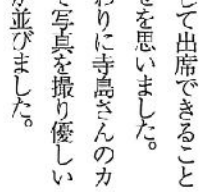 して出席できること
をを思いました。
わりに寺島さんのカ
て写真を撮り優しい
が並びました。